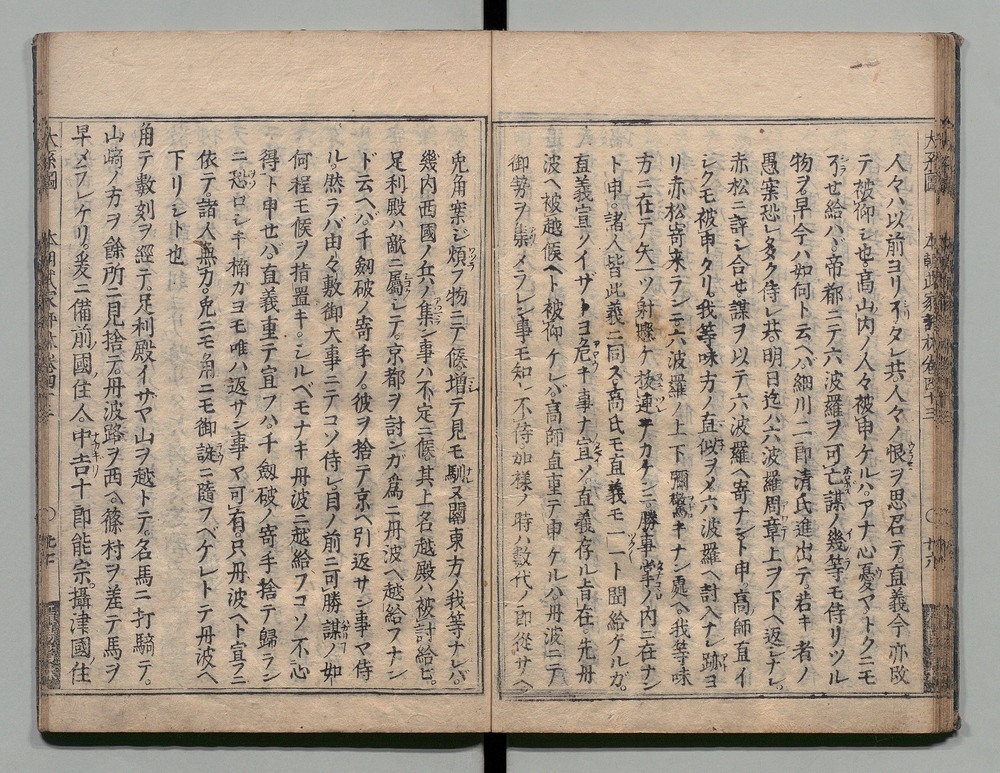 人々ハ以前ヨリイタレ共人々ノ恨ヲ思召テ直義今亦改
テ被仰シ也高山内ノ人々被申ケルハ。アナ心憂ヤトクニモ
不せ給ハ。帝都ニテ六波羅ヲ可亡謀ノ幾等モ侍リツル
物ヲ早今ハ如何ト云ヘハ。細川二郎清氏進出テ若キ者ノ
愚案恐レ多ク侍レ共。明日迄ハ六波羅周章上ヲ下ヘ返ナレ。
赤松ニ評シ合せ謀ヲ以テ六波羅ヘ寄ナント申。高師直イ
シクモ被申タリ。我等味方ノ真似ヲメ六波羅ヘ討入ナレ跡ヨ
リ赤松寄来ランニ六波羅ノ上下 キナン處ヘ我等味
方ニ在テ矢一ツ射 ケ 連 カケンニ勝事掌ノ内ニ在ナン
ト申。諸人皆此義ニ同ス。高氏モ直義モ一一ト聞給ケルガ。
直義宣ソイザトヨ危キ事ナ宣ソ。直義存ル旨在。先丹
波ヘ被越候ヘト被仰ケレバ。高師直重テ申ケルハ丹波ニテ
御勢ヲ集メラレン事モ知レ不侍。加様ノ時ハ数代ノ郎從サヘ
兎角案ジ煩フ物ニテ候。増テ見モ馴ヌ關東方ノ我等ナレバ。
幾内西國ノ兵ノ集ン事ハ不定ニ候其上名越殿ハ被討給ヒ。
足利殿ハ敵ニ屬シテ。京都ヲ討ンガ為ニ丹波ヘ越給フナン
ド云ヘバ千劔破ノ寄手ノ。彼ヲ捨テ京ヘ引返サン事マ侍
ル。然ラバ由々敷御大事ニテコソ侍レ目ノ前ニ可勝謀ノ如
何程モ候ヲ指置キ。シルベモナキ丹波ニ越給フコソ不心
得ト申せバ。直義重テ宣フハ。千劔破ノ寄手捨テ歸ラン
ニ恐ロシキ楠カヨモ唯ハ返サジ事マ可有。只丹波ヘト宣フニ
依テ諸人無力。兎ニモ角ニモ御諚ニ隨フベケレトテ丹波ヘ
下リシト也
角テ數刻ヲ經テ。足利殿イサヤ山ヲ越トテ。名馬ニ打騎テ。
山崎ノカヲ餘所ニ見捨テ。丹波路ヲ西ヘ篠村ヲ差テ馬ヲ
早メラレケリ。爰ニ備前ノ國ノ住人。中吉十郎能宗。攝津國ノ住